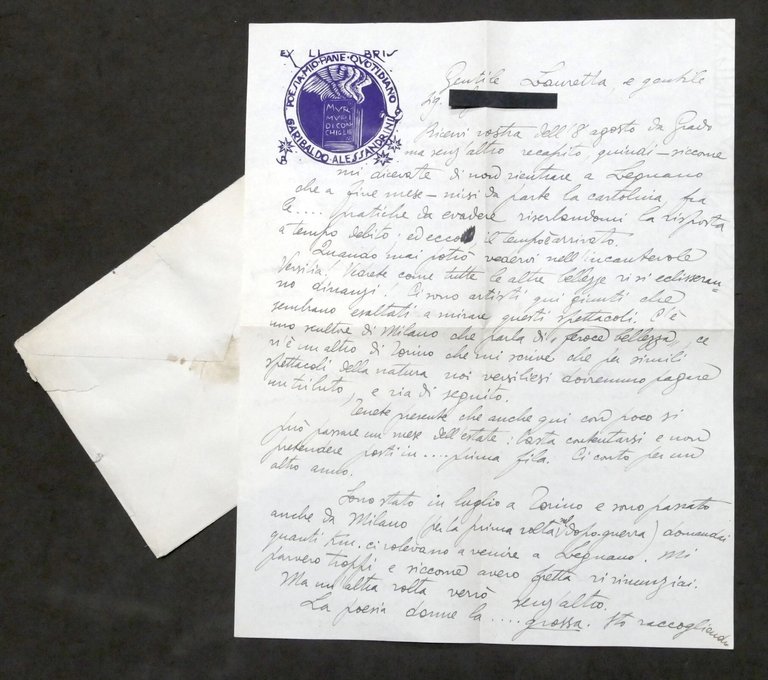 EX LIBRIS
POESIA MIO PANE QVOTIDIANO
GARIBALDO ALESSANDRINI
MVR
MVRI
DI CON
CHIGLIE
Gentile Lauretta, e gentile
Sig.
Ricevi vostra dell'8 agosto da Grado
ma senz'altro recapito, quindi – siccome
mi dicevate di non rientrare a Legnano
che a fine mese – misi da parte la cartolina, fra
le.... pratiche da evadere riserbandomi la risposta
a tempo debito: ed ecco, il tempo è arrivato.
Quando mai potrò vedervi nell'incantevole
Versilia! Vedrete come tutte le altre bellezze vi si eclisseran-
no dinnanzi! Ci sono artisti qui giunti che
sembrano esaltati a mirare questi spettacoli. C'è
uno scultore di Milano che parla di "feroce bellezza", ce
n'è un altro di Torino che mi scrive che per simili
spettacoli della natura noi versiliesi dovremmo pagare
un tributo, e via di seguito.
Tenete presente che anche qui con poco si
può passare un mese dell'estate: basta contentarsi e non
pretendere posti in.... prima fila. Ci conto per un
altro anno.
Sono stato in luglio a Torino e sono passato
anche da Milano (per la prima volta nel dopo guerra) domandai
quanti Km. ci volevano a venire a Legnano. Mi
parvero troppi e siccome avevo fretta vi rinunziai.
Ma un'altra volta verrò senz'altro.
La poesia dorme la.... grossa. Sto raccogliendo